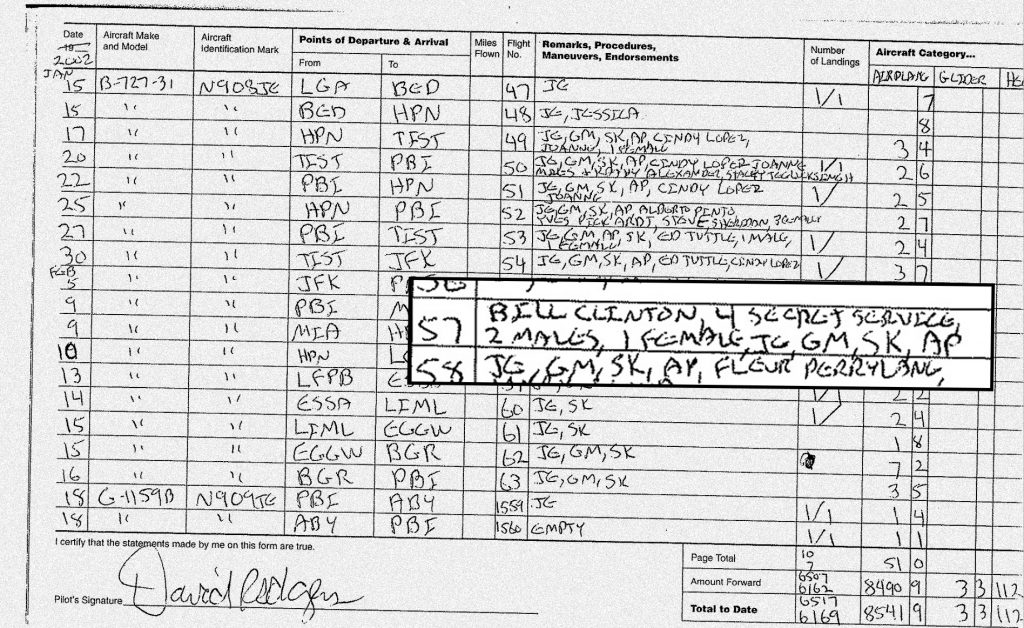 Date Aircraft Make and Model Aircraft Identification Mark Points of Departure & Arrival Miles Flown Flight No. Remarks, Procedures, Maneuvers, Endorsements Number of Landings Aircraft Category...
2002 From To AIRPLANE GLIDER
JAN
15 B-727-31 N908JE LGA BED 47 JE 1/1 7
15 " " BED HPN 48 JE, JESSICA 8
17 " " HPN TIST 49 JE, GM, SK, AP, CINDY LOPEZ, 3 4
JOANNE, 1 FEMALE
20 " " TIST PBI 50 JE, GM, SK, AP, CINDY LOPEZ JOANNE 1/1 2 6
ALEXANDER,
22 " " PBI HPN 51 JE, GM, SK, AP, CINDY LOPEZ 2 5
JOANNE
25 " " HPN PBI 52 JE, GM, SK, AP, ALBERTO PINTO, 2 7
27 " " PBI TIST 53 JE, GM, AP, SK, ED TUTTLE, 1 MALE, 2 4
1 FEMALE
30 " " TIST JFK 54 JE, GM, SK, AP, ED TUTTLE, CINDY LOPEZ 3 7
FEB
5 " " JFK
9 " " PBI
57 BILL CLINTON, 4 SECRET SERVICE,
9 " " MIA 2 MALES, 1 FEMALE, JE, GM, SK, AP
10 " " HPN 58 JE, GM, SK, AP, FLEUR PERRYLANG,
13 " " LFPB 2 2
14 " " ESSA LIML 60 JE, SK 2 4
15 " " LIML EGGW 61 JE, SK 1 8
15 " " EGGW BGR 62 JE, GM, SK 7 2
16 " " BGR PBI 63 JE, GM, SK 3 5
18 G-1159B N909JE PBI ABY 1559 JE 1/1 1 4
18 " " ABY PBI 1560 EMPTY 1/1 1 1
I certify that the statements made by me on this form are true.
Page Total 10 7 51 0
Amount Forward 6507 6162 8490 9 3 3 112
Pilot's Signature David Rodgers
Total to Date 6517 6169 8541 9 3 3 112